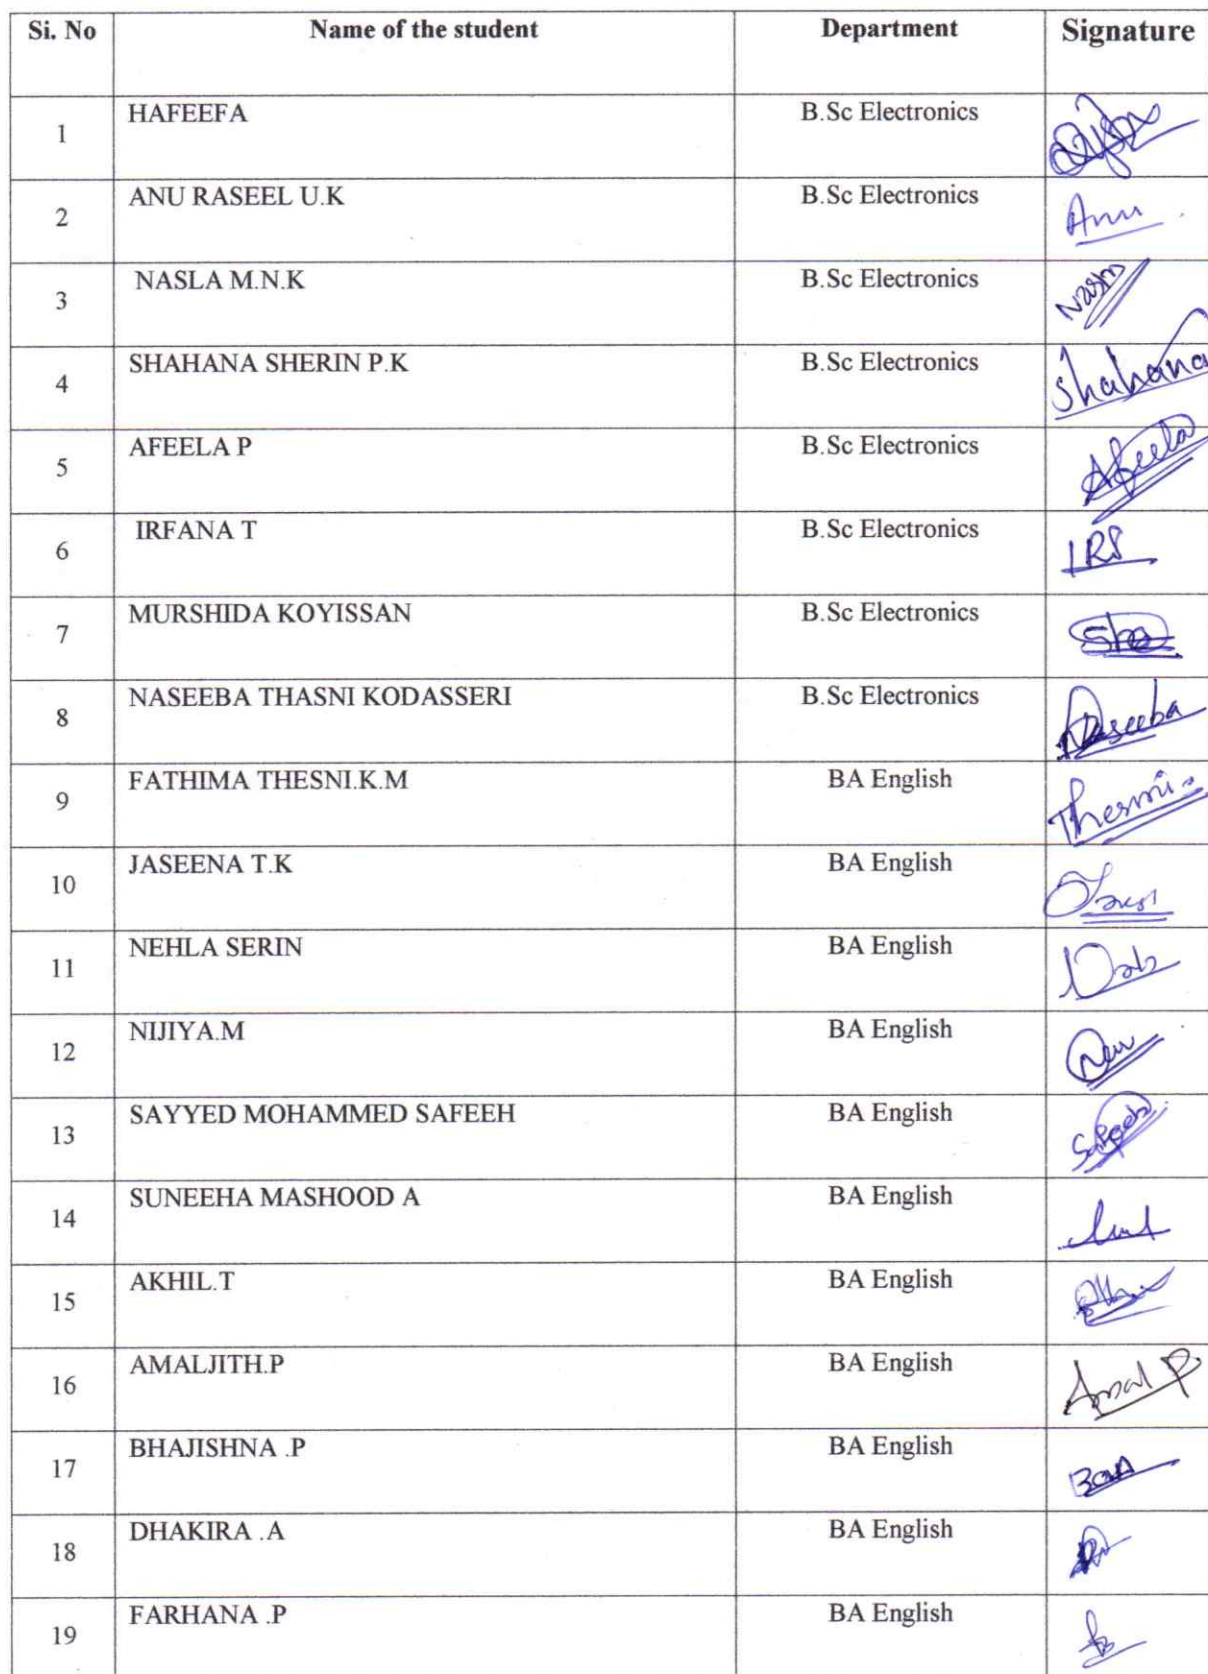 Si. No Name of the student Department Signature
1 HAFEEFA B.Sc Electronics
2 ANU RASEEL U.K B.Sc Electronics Anu
3 NASLA M.N.K B.Sc Electronics
4 SHAHANA SHERIN P.K B.Sc Electronics Shahana
5 AFEELA P B.Sc Electronics Afeela
6 IRFANA T B.Sc Electronics
7 MURSHIDA KOYISSAN B.Sc Electronics
8 NASEEBA THASNI KODASSERI B.Sc Electronics Naseeba
9 FATHIMA THESNI.K.M BA English Thesni
10 JASEENA T.K BA English
11 NEHLA SERIN BA English
12 NIJIYA.M BA English
13 SAYYED MOHAMMED SAFEEH BA English
14 SUNEEHA MASHOOD A BA English
15 AKHIL.T BA English
16 AMALJITH.P BA English Amal P
17 BHAJISHNA .P BA English
18 DHAKIRA .A BA English
19 FARHANA .P BA English